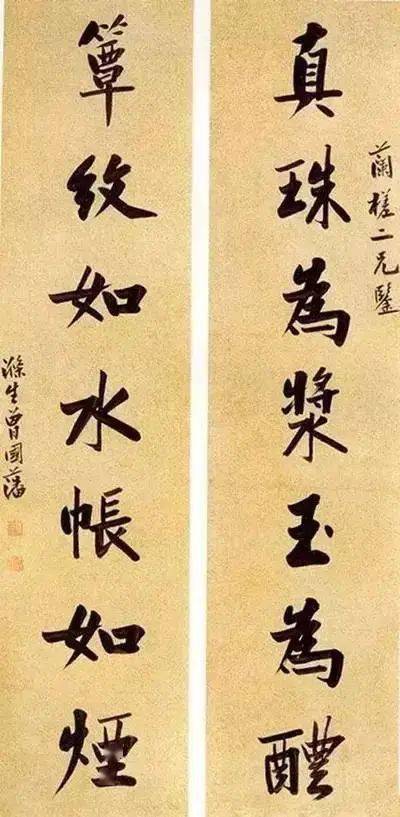 蘭槎二兄鑒
真珠為漿玉為醴
簟紋如水帳如煙
滌生曾國藩